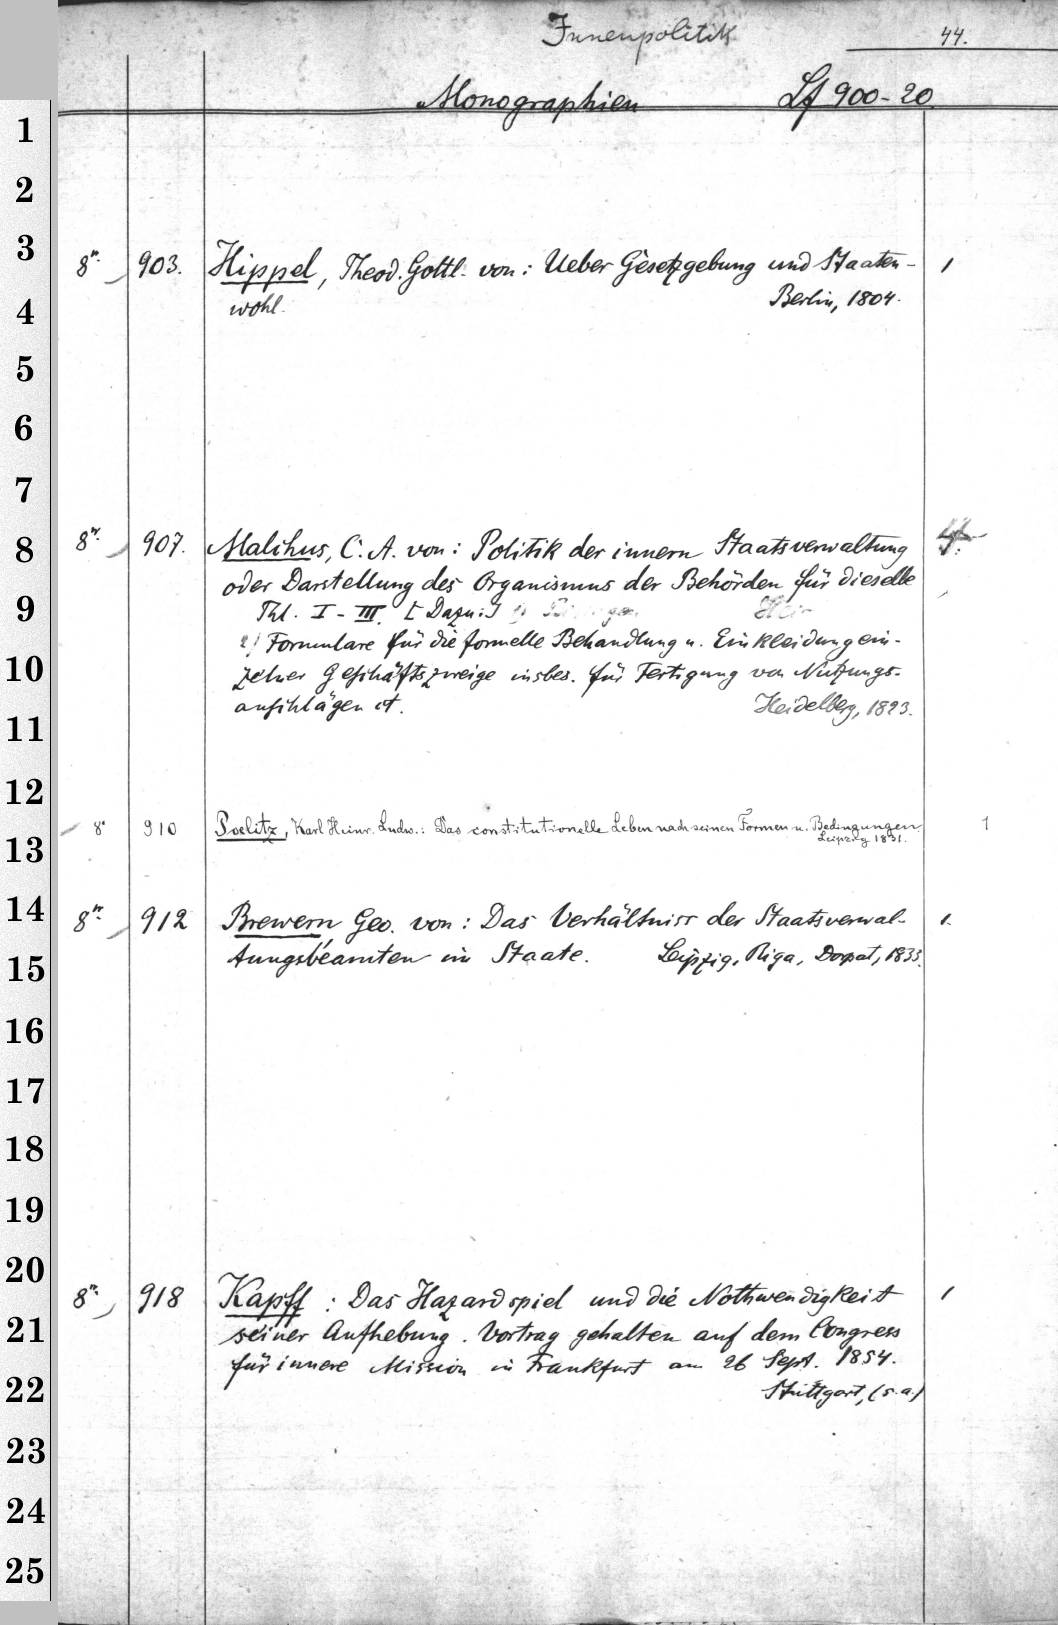 Innenpolitik
44.
Monographien Lf 900-20
1
2
3
8° 903. Hippel, Theod. Gottl. von: Ueber Gesetzgebung und Staaten- 1
wohl. Berlin, 1804.
4
5
6
7
8
8° 907. Malchus, C. A. von: Politik der innern Staatsverwaltung
oder Darstellung des Organismus der Behörden für dieselbe
9
Thl. I - III. [Dazu:]
2) Formulare für die formelle Behandlung u. Einkleidung ein-
10
zelner Geschäftszweige insbes. für Fertigung von Nutzungs-
anschlägen et. Heidelberg, 1823.
11
12
8° 910 Poelitz, Karl Heinr. Ludw.: Das constitutionelle Leben nach seinen Formen u. Bedingungen 1
Leipzig 1831.
13
14
8° 912 Brewern Geo. von: Das Verhältniss der Staatsverwal- 1.
tungsbeamten im Staate. Leipzig, Riga, Dorpat, 1833.
15
16
17
18
19
20
8° 918 Kapff: Das Hazardspiel und die Nothwendigkeit 1
21
seiner Aufhebung. Vortrag gehalten auf dem Congress
für innere Mission in Frankfurt am 26 Sept. 1854.
22
Stuttgart, (s.a.)
23
24
25